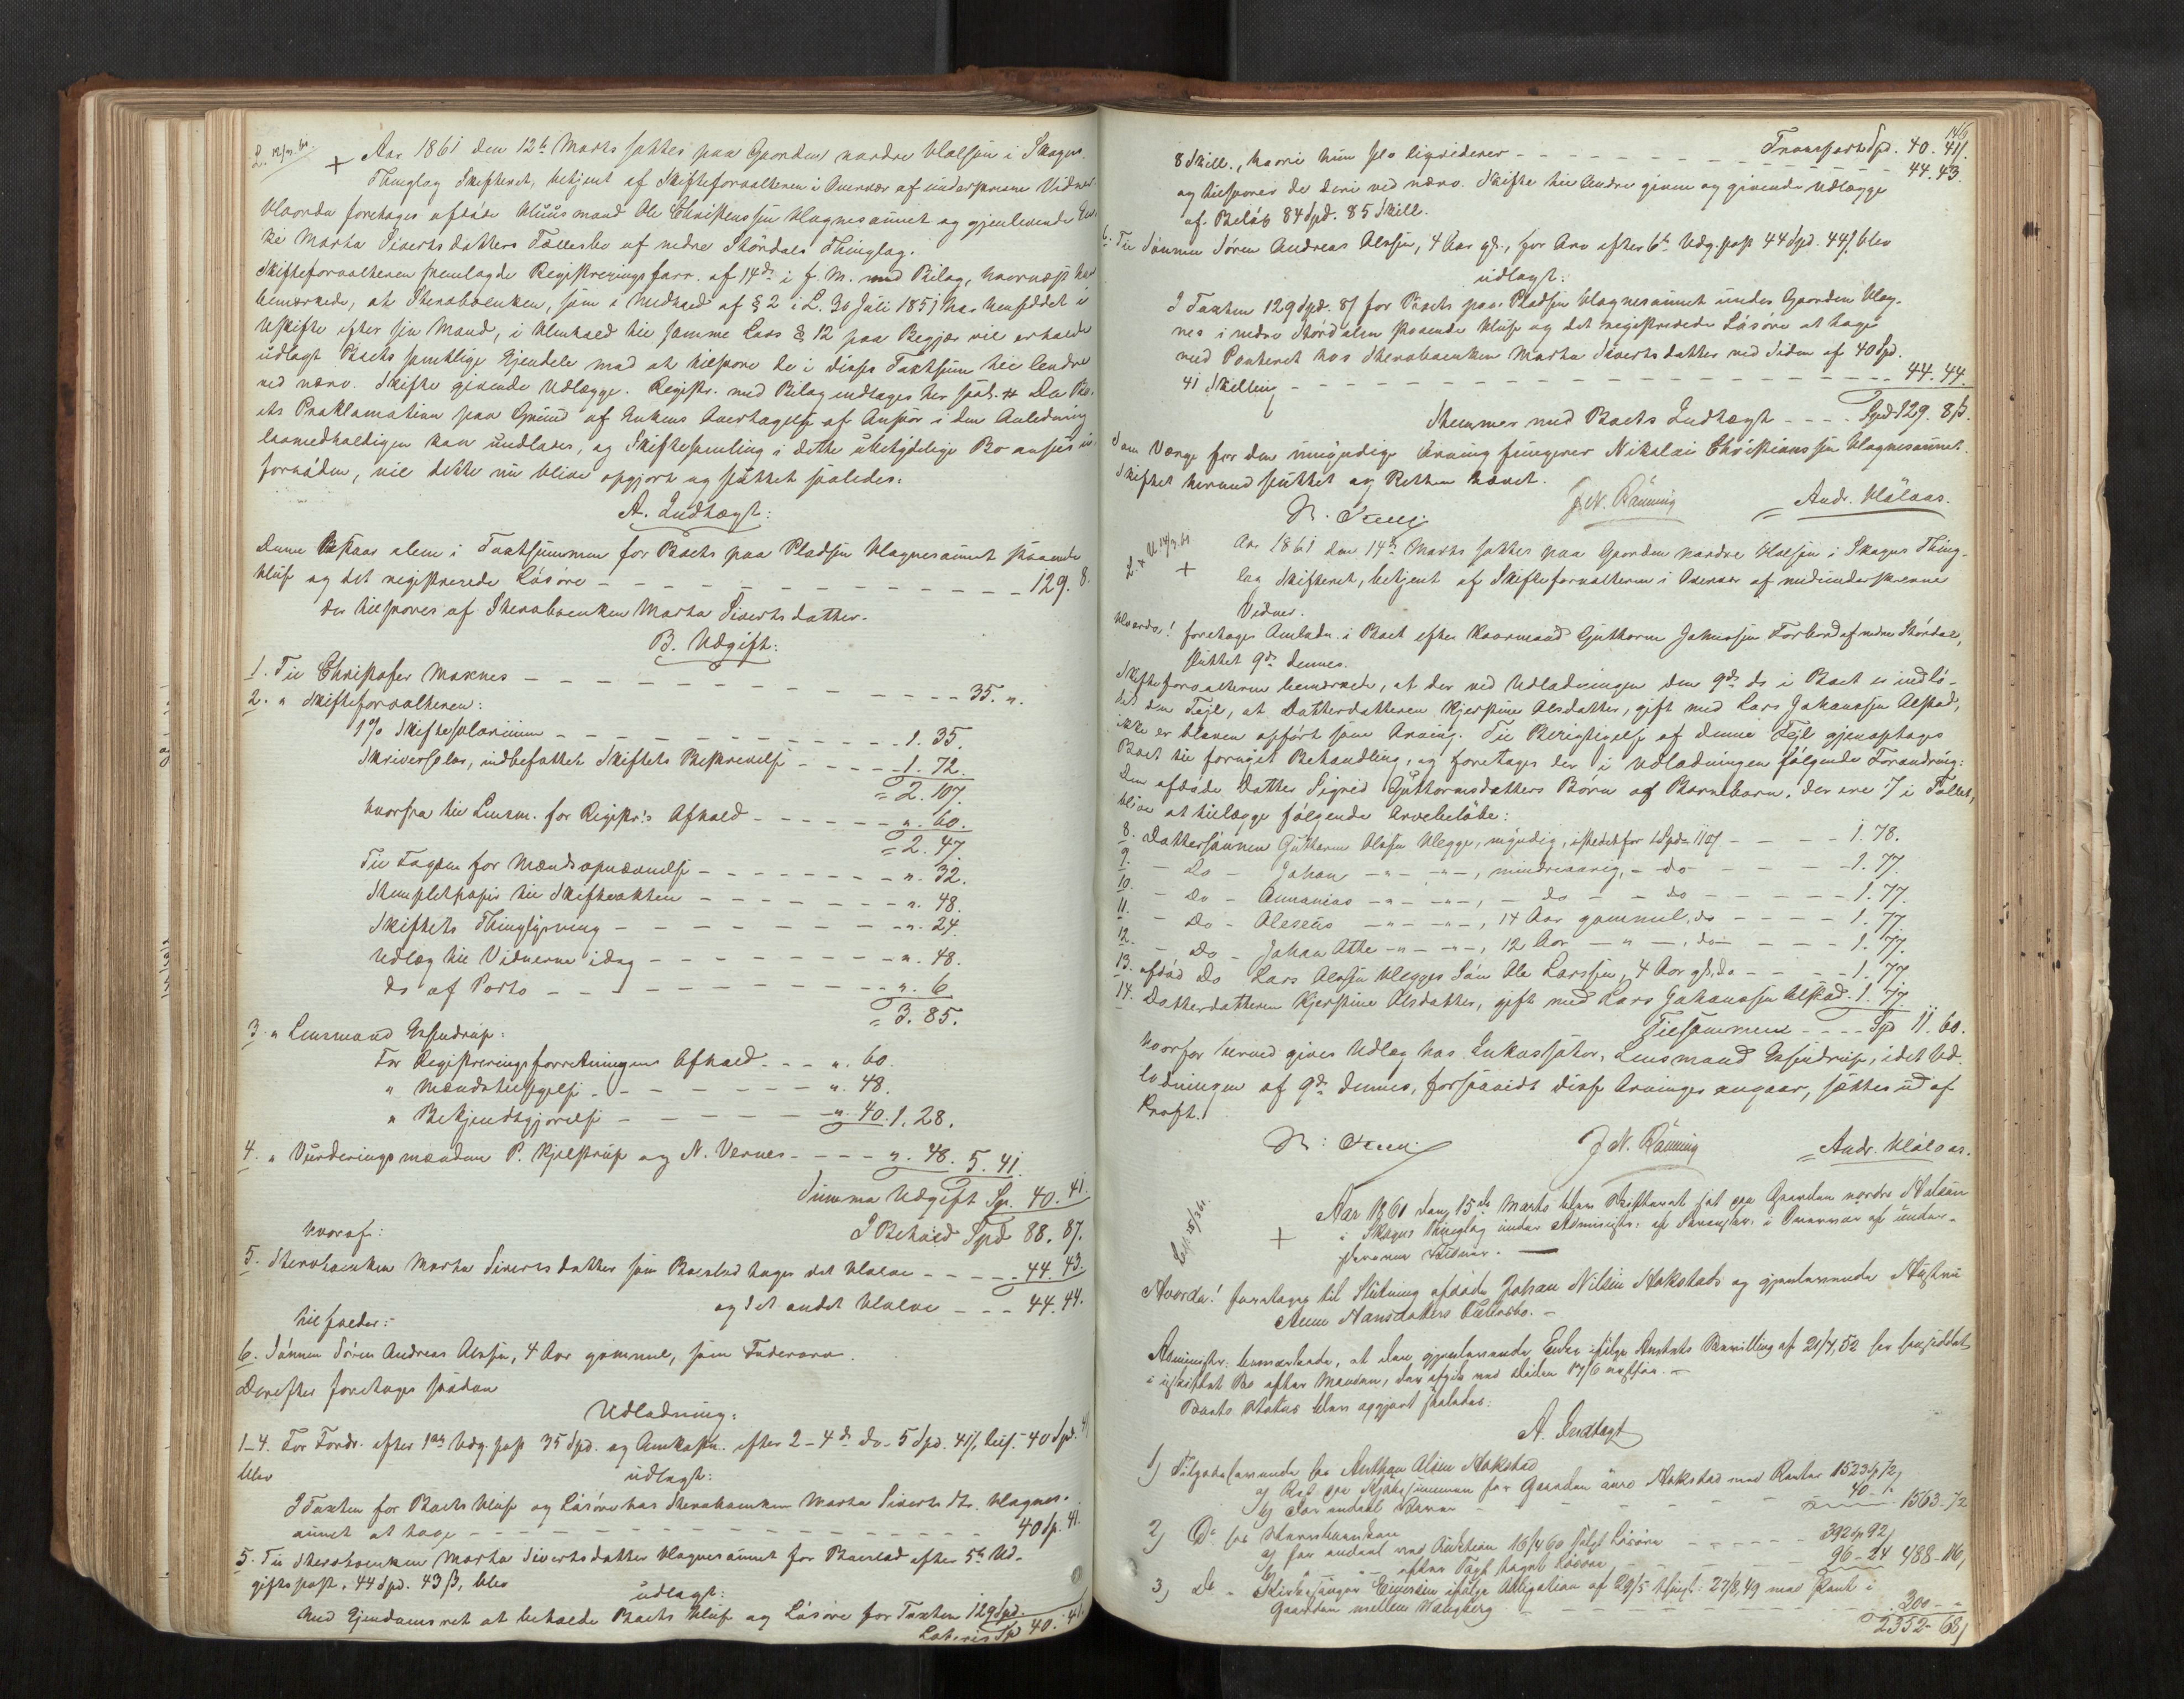 L. 12/3.61.
+ Aar 1861 den 12te Marts sattes paa Gaarden nordre Halsen i Skogns
Thinglag Skifteret, betjent af Skifteforvalteren i Overvær af underskrevne Vidner.
Hvorda foretages afdøde Huusmand Ole Christenssen Vognesaunet og gjenlevende
ke Marta Sivertsdatters Fællesbo af nedre Størdals Thinglag.
Skifteforvalteren fremlagde Registreringsforr. af 14de i f. M. med Bilag, hvornæst han
bemærkede, at Stervboenken, som i Medhold af § 2 i L. 30 Juli 1851 har hensiddet i
Uskifte efter sin Mand, i Henhold til samme Lovs § 12 paa Begjær vil erholde
udlagt Boets samtlige Eiendele mod at tilsvare de i disses Taxtsum til Andre
ved nærv. Skifte givende Udlægge. Registr. med Bilag indtages her saal. # Da Bo-
ets Proklamation paa Grund af Enkens Overtagelse af Ansvar i den Anledning
lovmedholdigen kan undlades, og Skiftesamling i dette ubetydelige Bo ansees
fornøden, vil dette nu blive opgjort og sluttet saaledes:
A. Indtægt:
Denne bestaar alene i Taxtsummen for Boets paa Pladsen Vognesaunet staaende
Huse og det registrerede Løsøre - - - 129. 8.
der tilsvares af Stervboenken Marta Sivertsdatter.
B. Udgift:
1. Til Christofer Moxnes - - - 35. ".
2. " Skifteforvalteren:
1% Skiftesalarium - - - 1. 35.
Skriversalær, indbefattet Skiftets Beskrivelse - - - 1. 72.
= 2. 107.
hvorfra til Lensm. for Registr:s Afhold - - - ". 60.
= 2. 47.
Til Fogden for Mændsopnævnelse - - - ". 32.
Stempletpapir til Skifteakten - - - ". 48.
Skiftets Thinglysning - - - ". 24.
Udlæg til Vidnerne idag - - - ". 48.
do af Porto - - - ". 6
= 3. 85.
3. " Lensmand Essendrup:
For Registreringsforretningens Afhold - - - ". 60.
" Mændstilsigelse - - - ". 48.
" Bekjendtgjørelse - - - ". 40. 1. 28.
4. " Vurderingsmændene P. Kjelstrup og N. Vernes - - - ". 48. 5. 41.
Summa Udgift Sp. 40. 41.
hvoraf: I Behold Spd 88. 87.
5. Stervboenken Marta Sivertsdatter som Boeslod tager det Halve - - - 44. 43.
og det andet Halve - - - 44. 44.
tilfalder:
6. Sønnen Søren Andreas Olssen, 4 Aar gammel, som Faderarv.
Derefter foretages saadan
Udlodning:
1–4. For Fordr. efter 1ste Udg.post 35 Spd. og Omkostn. efter 2–4de do 5 Spd. 41 ß, tils. 40 Spd. 41
blev udlagt:
I Taxten for Boets Huse og Løsøre hos Stervboenken Marta Siverts dtr. Vognes-
aunet at tage - - - 40 Sp. 41.
5. Til Stervboenken Marta Sivertsdatter Vognesaunet for Boeslod efter 5te Ud-
giftspost, 44 Spd. 43 ß, blev
udlagt:
Med Eiendomsret at beholde Boets Huse og Løsøre for Taxten 129 Spd.
Lateris Sp 40. 41.
146
Transport Spd. 40. 41.
8 Skill., hvori hun selv liqviderer - - - 44. 43.
og tilsvarer de deri ved nærv. Skifte til Andre given og givende Udlægge
af Beløb 84 Spd. 85 Skill.
6. Til Sønnen Søren Andreas Olssen, 4 Aar gl., for Arv efter 6te Udg.post 44 Spd. 44 ß blev
udlagt:
I Taxten 129 Spd. 8 ß for Boets paa Pladsen Vognesaunet under Gaarden Vog-
nes i nedre Størdalen staaende Huse og det registrerede Løsøre at tage
med Panteret hos Stervboenken Marta Sivertsdatter ved Siden af 40 Spd.
41 Skilling - - - 44. 44.
Stemmer med Boets Indtægt - - - Spd 129. 8 ß.
Som Værge for den umyndige Arving fungerer Nikolai Christianssen Vognesaunet.
Skiftet hermed sluttet og Retten hævet.
J. N. Rønning
= Andr. Hålaas.
L. + U 14/3.61
+ Aar 1861 den 14de Marts sattes paa Gaarden nordre Halsen i Skogns Thing-
lag Skifteret, betjent af Skifteforvalteren i Overvær af medunderskrevne
Vidner.
Hvorda! foretages Omlodn. i Boet efter Kaarmand Guttorm Johnssen Forbord af nedre Størdal,
sluttet 9de dennes.
Skifteforvalteren bemærkede, at der ved Udlodningen den 9de ds i Boet er indlø-
bet den Feil, at Datterdatteren Kjerstine Olsdatter, gift med Lars Johanssen Alstad,
ikke er bleven opført som Arving. Til Berigtigelse af denne Feil gjenoptages
Boet til fornyet Behandling, og foretages der i Udlodningen følgende Forandring:
Den afdøde Datter Sigrid Guttormsdatters Børn og Barnebarn, der ere 7 i Tallet,
blive at tillægge følgende Arvebeløbe:
8. Dattersønnen Guttorm Olssen Klegge, myndig, istedetfor 1 Spd. 110 ß - - - 1. 78.
9. - Do - Johan - " - " -, mindreaarig, - do - - - 1. 77.
10. - Do - Annanias - " - " -, - do - - do - - - 1. 77.
11. - Do - Oleseus - " - " -, 14 Aar gammel, do - - - 1. 77.
12. - Do - Johan Athe - " - " -, 12 Aar - " -, do - - - 1. 77.
13. afdød Do Lars Olssen Klegges Søn Ole Larssen, 4 Aar gl, do - - - 1. 77
14. Datterdatteren Kjerstine Olsdatter, gift med Lars Johanssen Alstad. 1. 77.
Tilsammen - - - Sp 11. 60.
hvorfor herved gives Udlæg hos Inkassator, Lensmand Essendrup, idet Ud-
lodningen af 9de dennes, forsaavidt disse Arvinger angaar, sættes ud af
Kraft.
J N. Rønning
= Andr. Hålaas.
15/3 61.
+ Aar 1861 den 15de Marts blev Skifteret sat paa Gaarden nordre Halsen
i Skogns Thinglag under Administr. af Sorenskr. i Overvær af under-
skrevne Vidner. —
Hvorda! foretages til Slutning afdøde Johan Nilsen Hokstads og gjenlevende Hustru
Anne Hansdatters Fællesbo. —
Administr. bemærkede, at den gjenlevende Enke ifølge Amtets Bevilling af 21/4, 52 har hensiddet
i uskiftet Bo efter Manden, der afgik ved Døden 17/6 næstfør. —
Boets Status blev opgjort saaledes:
A. Indtægt
1) Tilgodehavende hos Anthon Olsen Hokstad
a) Rest paa Kjøbesummen for Gaarden øvre Hokstad med Renter 1523 sp 72
b) For andel Varer - - - 40 - " 1563 - 72
2) Do hos Stervboenken
a) for andeel ved Auktion 16/4 60 solgt Løsøre - - - 392 sp 92
b) " " efter Taxt taget Løsøre - - - 96 - 24 488 - 116
3) Do - Kirkesanger Einersen ifølge Obligation af 29/5 thinglyst: 27/8, 49 med Pant i
Gaarden mellem Haugberg - - - 300 - "
2352 - 68